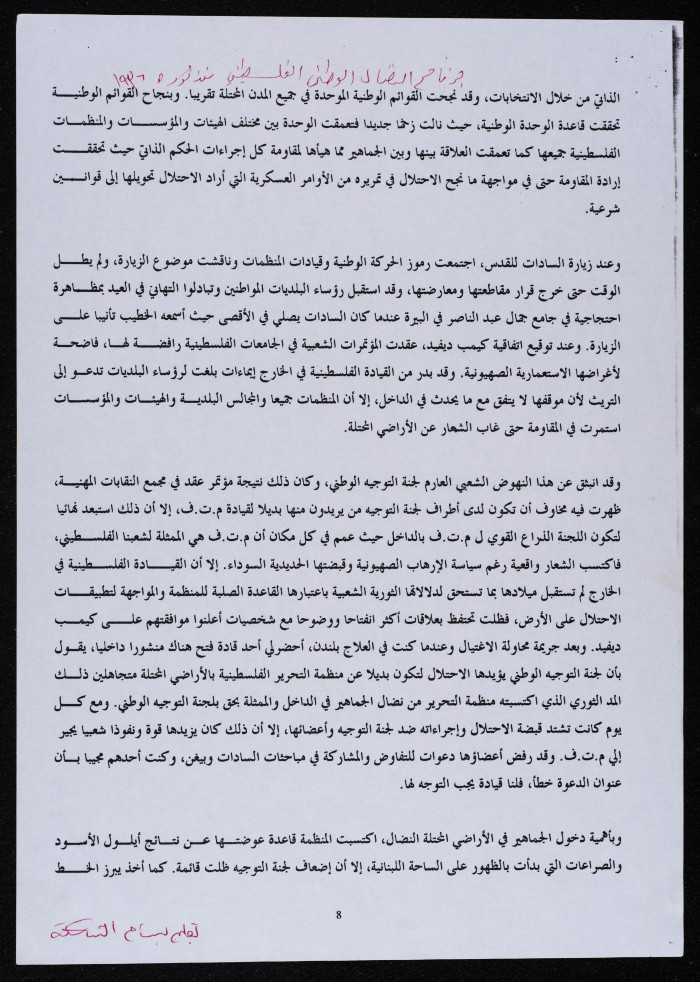 من ملامح النضال الوطني الفلسطيني منذ ثورة ١٩٣٦
الذاتي من خلال الانتخابات، وقد نجحت القوائم الوطنية الموحدة في جميع المدن المحتلة تقريبا. وبنجاح القوائم الوطنية
تحققت قاعدة الوحدة الوطنية، حيث نالت زخما جديدا فتعمقت الوحدة بين مختلف الهيئات والمؤسسات والمنظمات
الفلسطينية جميعها كما تعمقت العلاقة بينها وبين الجماهير مما هيأها لمقاومة كل إجراءات الحكم الذاتي حيث تحققت
إرادة المقاومة حتى في مواجهة ما نجح الاحتلال في تمريره من الأوامر العسكرية التي أراد الاحتلال تحويلها إلى قوانين
شرعية.
وعند زيارة السادات للقدس، اجتمعت رموز الحركة الوطنية وقيادات المنظمات وناقشت موضوع الزيارة، ولم يطل
الوقت حتى خرج قرار مقاطعتها ومعارضتها، وقد استقبل رؤساء البلديات المواطنين وتبادلوا التهاني في العيد بمظاهرة
احتجاجية في جامع جمال عبد الناصر في البيرة عندما كان السادات يصلي في الأقصى حيث أسمعه الخطيب تأنيبا على
الزيارة. وعند توقيع اتفاقية كيمب ديفيد، عقدت المؤتمرات الشعبية في الجامعات الفلسطينية رافضة لها، فاضحة
لأغراضها الاستعمارية الصهيونية. وقد بدر من القيادة الفلسطينية في الخارج إيماءات بلغت لرؤساء البلديات تدعو إلى
التريث لأن موقفها لا يتفق مع ما يحدث في الداخل، إلا أن المنظمات جميعا والمجالس البلدية والهيئات والمؤسسات
استمرت في المقاومة حتى غاب الشعار عن الأراضي المحتلة.
وقد انبثق عن هذا النهوض الشعبي العارم لجنة التوجيه الوطني، وكان ذلك نتيجة مؤتمر عقد في مجمع النقابات المهنية،
ظهرت فيه مخاوف أن تكون لدى أطراف لجنة التوجيه من يريدون منها بديلا لقيادة م.ت.ف، إلا أن ذلك استبعد نهائيا
لتكون اللجنة الذراع القوي ل م.ت.ف بالداخل حيث عمم في كل مكان أن م.ت.ف هي الممثلة لشعبنا الفلسطيني،
فاكتسب الشعار واقعية رغم سياسة الإرهاب الصهيونية وقبضتها الحديدية السوداء. إلا أن القيادة الفلسطينية في
الخارج لم تستقبل ميلادها بما تستحق لدلالاتها الثورية الشعبية باعتبارها القاعدة الصلبة للمنظمة والمواجهة لتطبيقات
الاحتلال على الأرض، فظلت تحتفظ بعلاقات أكثر انفتاحا ووضوحا مع شخصيات أعلنوا موافقتهم على كيمب
ديفيد. وبعد جريمة محاولة الاغتيال وعندما كنت في العلاج بلندن، أحضرلي أحد قادة فتح هناك منشورا داخليا، يقول
بأن لجنة التوجيه الوطني يؤيدها الاحتلال لتكون بديلا عن منظمة التحرير الفلسطينية بالأراضي المحتلة متجاهلين ذلك
المد الثوري الذي اكتسبته منظمة التحرير من نضال الجماهير في الداخل والممثلة بحق بلجنة التوجيه الوطني. ومع كل
يوم كانت تشتد قبضة الاحتلال وإجراءاته ضد لجنة التوجيه وأعضائها، إلا أن ذلك كان يزيدها قوة ونفوذا شعبيا يجير
إلي م.ت.ف. وقد رفض أعضاؤها دعوات للتفاوض والمشاركة في مباحثات السادات وبيغن، وكنت أحدهم مجيبا بأن
عنوان الدعوة خطأ، فلنا قيادة يجب التوجه لها.
وبأهمية دخول الجماهير في الأراضي المحتلة النضال، اكتسبت المنظمة قاعدة عوضتها عن نتائج أيلول الأسود
والصراعات التي بدأت بالظهور على الساحة اللبنانية، إلا أن إضعاف لجنة التوجيه ظلت قائمة. كما أخذ يبرز الخط
8
بقلم بسام الشكعة